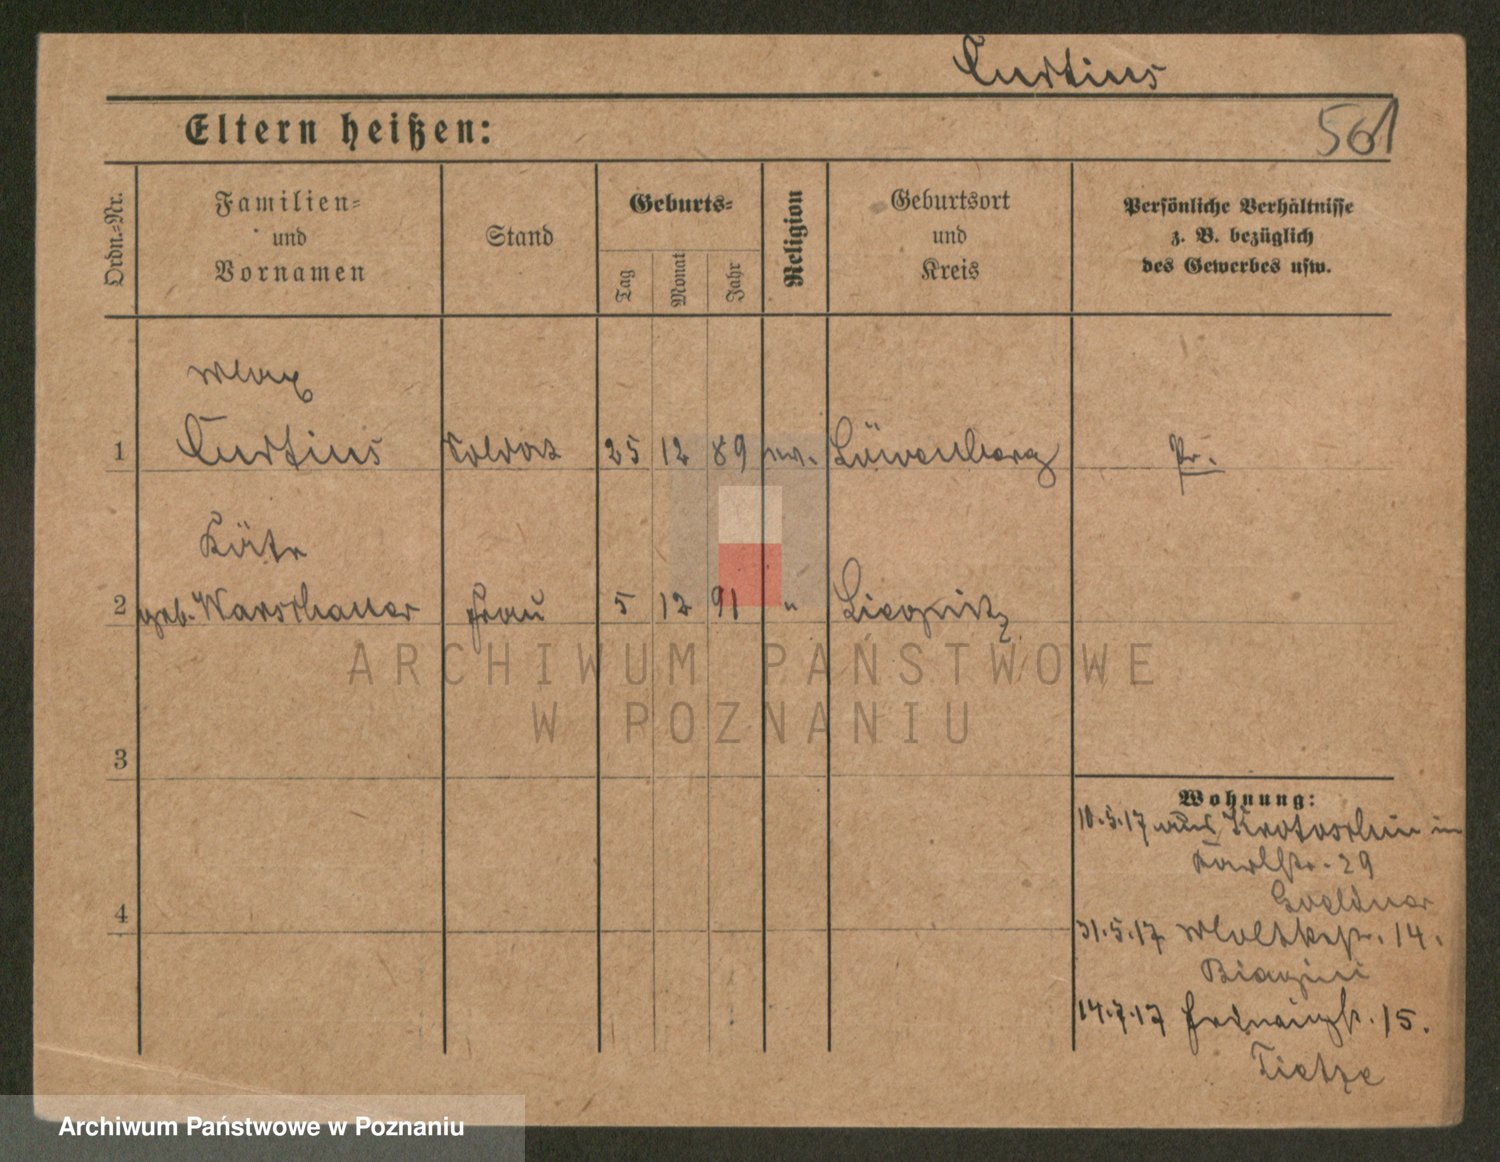 Curtius
Eltern heißen:
561
Ordn.-Nr.
Familien-
und
Vornamen
Stand
Geburts-
Tag
Monat
Jahr
Religion
Geburtsort
und
Kreis
Persönliche Verhältnisse
z. B. bezüglich
des Gewerbes usw.
Max
1 Curtius Soldat 25 12 89 ev. Löwenberg Pr.
Käte
2 geb. Warschauer Frau 5 12 91 " Liegnitz
ARCHIWUM PAŃSTWOWE
W POZNANIU
3
Wohnung:
10.5.17 aus Krotoschin in
Karlstr. 29
Goeldner
4
31.5.17 Moltkestr. 14.
Biagini
14.7.17 Prinzstr. 15.
Tietze
Archiwum Państwowe w Poznaniu